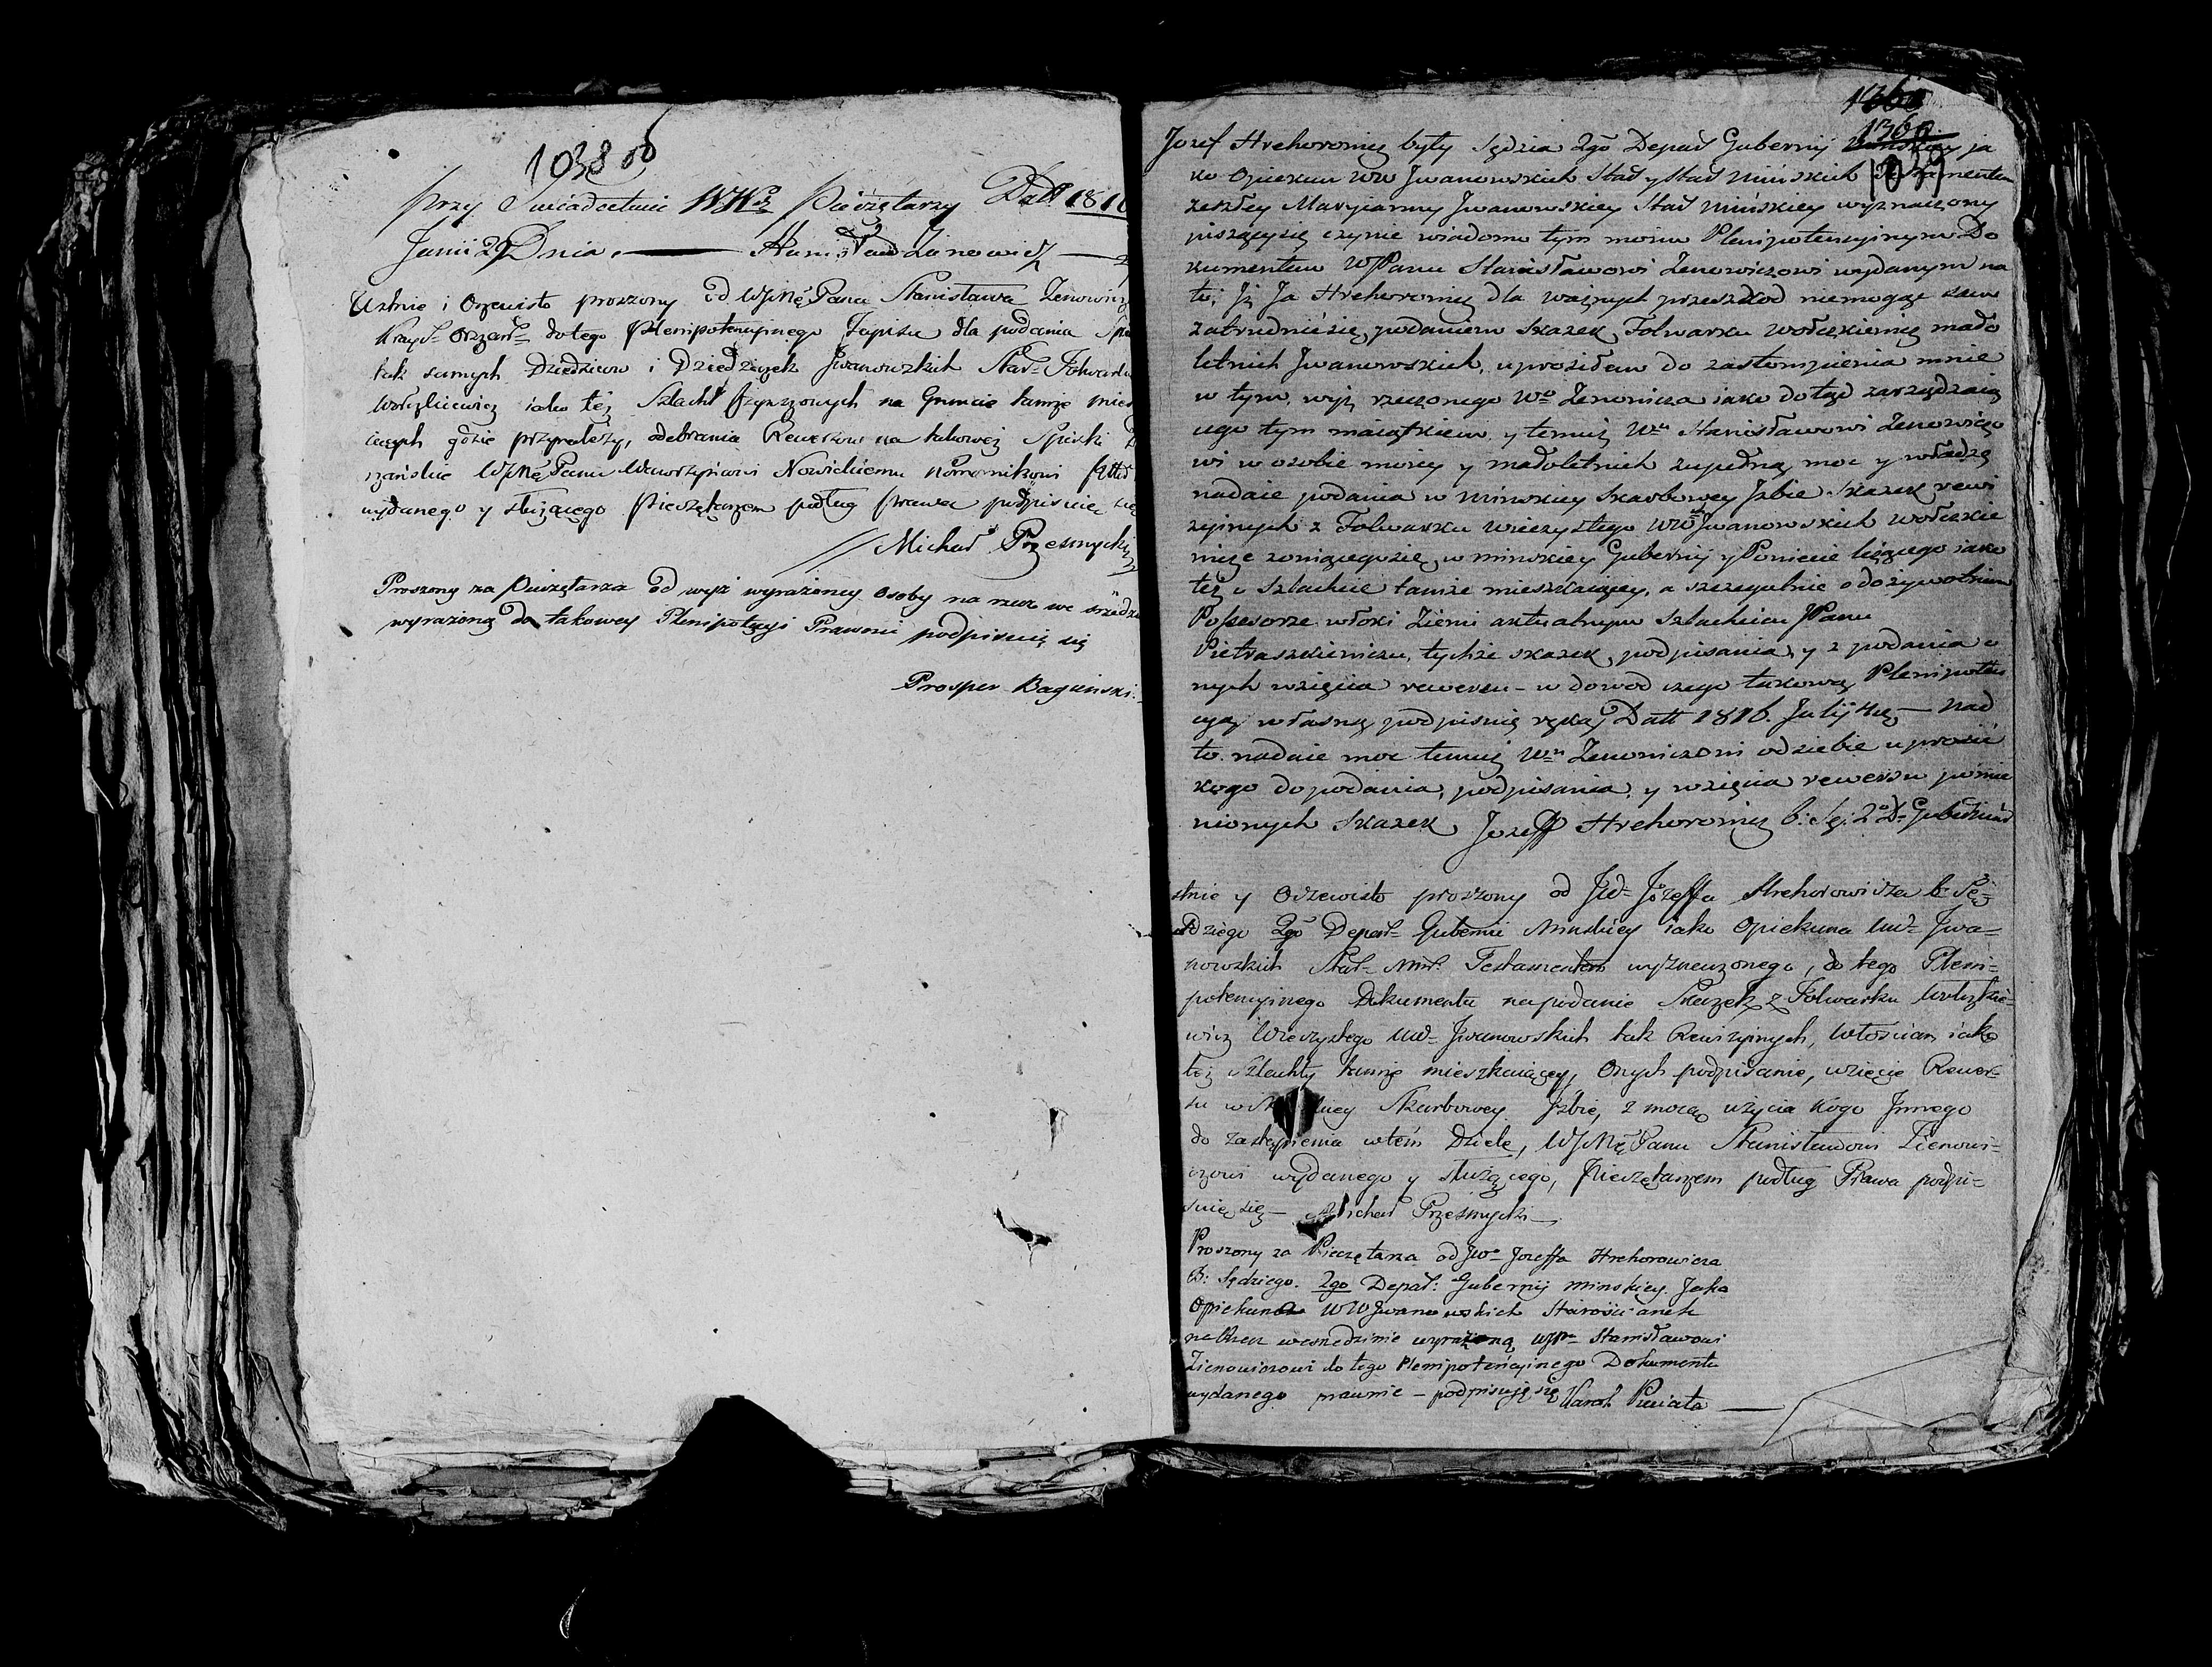 1038 об
przy Swiadectwie WWch Pieczętarzy Datt 1816
Junii 29 Dnia. Stanisław Zenowicz
Ustnie i Oczewisto proszony od WJMć Pana Stanisława Zenowicza
do tego Plenipotencyjnego Zapisu dla podania
tak samych Dziedziców i Dziedziczek Jwanowskich Star. Folwarku
Wołczkiewicz iako też Szlacht Czynszowych na Gruncie tamże
iących gdzie przynależy, odebrania Rewersow na takoweż Spiski
WJMć Panu Wawrzyńcowi Nowickiemu Komornikowi
wydanego y służącego Pieczętarzem podług Prawa podpisuię się
Michał Przesmycki
Proszony za Pieczętarza od wyż wyrażoney Osoby na rzecz we srzedzi
wyrażoną do takowey Plenipotęcyi Prawnie podpisuię się
Prosper Bagieński
1360
1360
1039
Jozef Hrehorowicz były Sędzia 2go Depart Gubernij Minskiey ja
ko Opiekun WW Jwanowskich Staś y Staś Mińskich Testamentem
zeszłey Maryianny Jwanowskiey Staś Mińskiey wyznaczony
piszący się czynie wiadomo tym moim Plenipotencyinym Do
kumentem WJPanu Stanisławowi Zenowiczowi wydanym na
to; Jż Ja Hrehorowicz dla ważnych przeszkod niemogąc sam
zatrudnić się podaniem Skazek Folwarku Wołczkiewicz mało
letnich Jwanowskich, uprosiłem do zastompienia mnie
w tym wyż rzeczonego Wo Zenowicza iako dotąd zarządzaią
cego tym maiątkiem y temuż Wu Stanisławowi Zenowiczo
wi w osobie moiey y małoletnich zupełną moc y władzę
nadaie podania w Minskiey Skarbowey Jzbie Skazek rewi
zyinych z Folwarku wieczystego WW Jwanowskich Wołczkie
wicze zowiącego się w minskiey Gubernij y Powiecie leżącego iako
też o Szlachcie tamże mieszkaiącey, a szczegulnie o dożywotnim
Possesorze włoki Ziemi aktualnym Szlachcicu JPanu
Pietraszkiewiczu, tychże skazek podpisania, y z podania o
nych wzięcia rewersu - w dowod czego takową Plenipoten
cyą własną podpisuię ręką Datt 1816. Julij - nad
to nadaie moc temuż Wu Zenowiczowi od siebie uprosić
kogo do podania, podpisania, y wzięcia rewersu pomie
nionych Skazek Jozeff Hrehorowicz b: Sę: 2o D.
stnie y Oczewisto proszony od JW Józeffa Hrehorowicza b. Sę
dziego 2go Depar. Gubernii Minskiey iako Opiekuna WW Jwa=
nowskich Star. Testamentem wyznaczonego, do tego Pleni=
potencyinego Dokumentu na podanie Skazek z Folwarku Wołczkie=
wicz Wieczystego WW Jwanowskich tak Rewizyinych, Włościan iako
też Szlachty tamże mieszkaiącey, Onych podpisanie, wzięcie Rewer=
su w Skarbowey Jzbie, z mocą użycia Kogo Jnnego
do zastąpienia w tem Dziele, WJMć Panu Stanisławowi Zienowi=
czowi wydanego y służącego, Pieczętarzem podług Prawa podpi=
suię się - Michał Przesmycki
Proszony za Pieczętarza od JWo Jozeffa Hrehorowicza
B: Sędziego. 2go Depar: Gubernij Minskiey. Jako
Opiekuna WW Jwanowskich Starościanek
na Rzecz we srzedzinie wyrażoną Stanisławowi
Zienowiczowi do tego Plenipotencyinego Dokumentu
wydanego prawnie - podpisuję się Karol